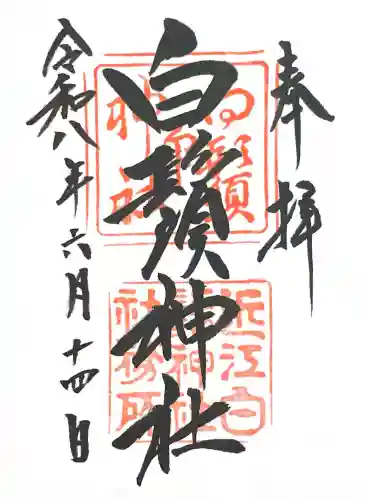 奉拝
白鬚神社
令和八年六月十四日
白鬚神社
近江白鬚神社社務所